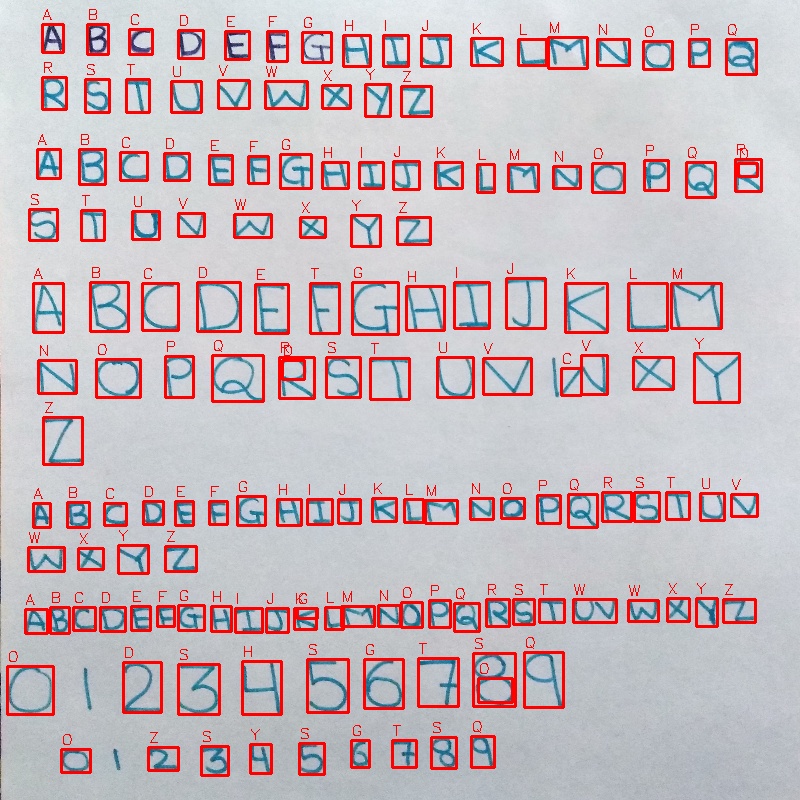 A B C D E F G H I J K L M N O P Q
A B C D E F G H I J K L M N O P Q
R S T U V W X Y Z
R S T U V W X Y Z
A B C D E F G H I J K L M N O P Q
A B C D E F G H I J K L M N O P Q R
S T U V W X Y Z
S T U V W X Y Z
A B C D E T G H I J K L M
A B C D E F G H I J K L M
N O P Q S T U V C V X Y
N O P Q R S T U V W X Y
Z
Z
A B C D E F G H I J K L M N O P Q R S T U V
A B C D E F G H I J K L M N O P Q R S T U V
W X Y Z
W X Y Z
A B C D E F G H I J L M N O P Q R S T W W X Y Z
A B C D E F G H I J K L M N O P Q R S T U V W X Y Z
O D S H S G T S O Q
0 1 2 3 4 5 6 7 8 9
O Z S Y S G T S Q
0 1 2 3 4 5 6 7 8 9